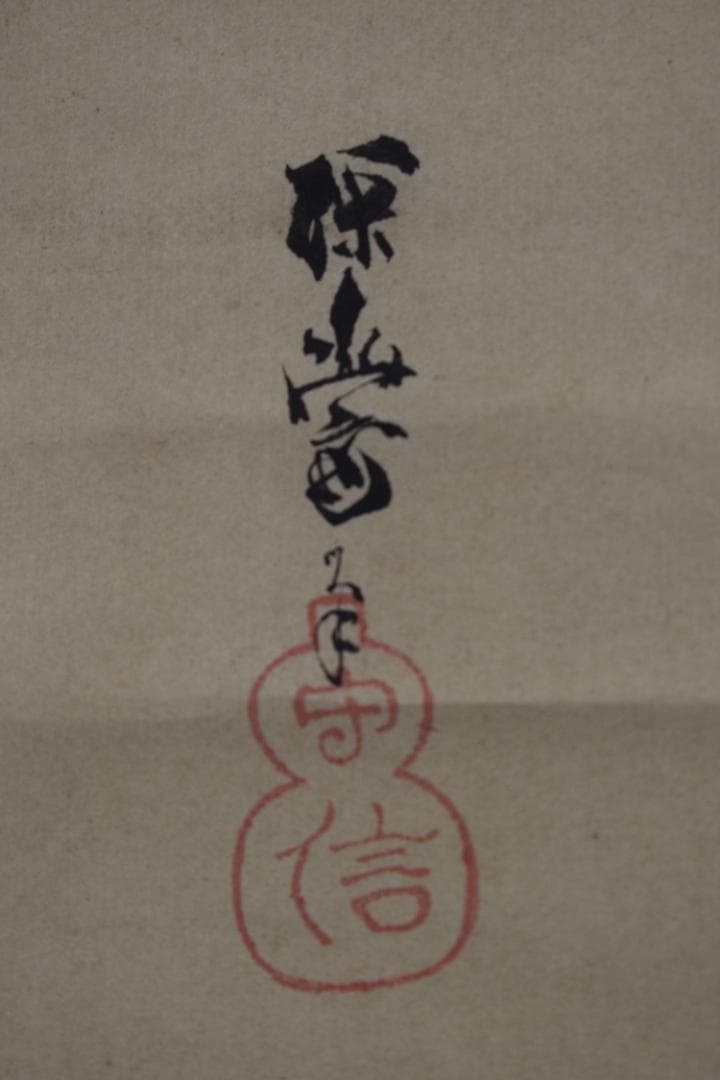 探幽齋筆
守信